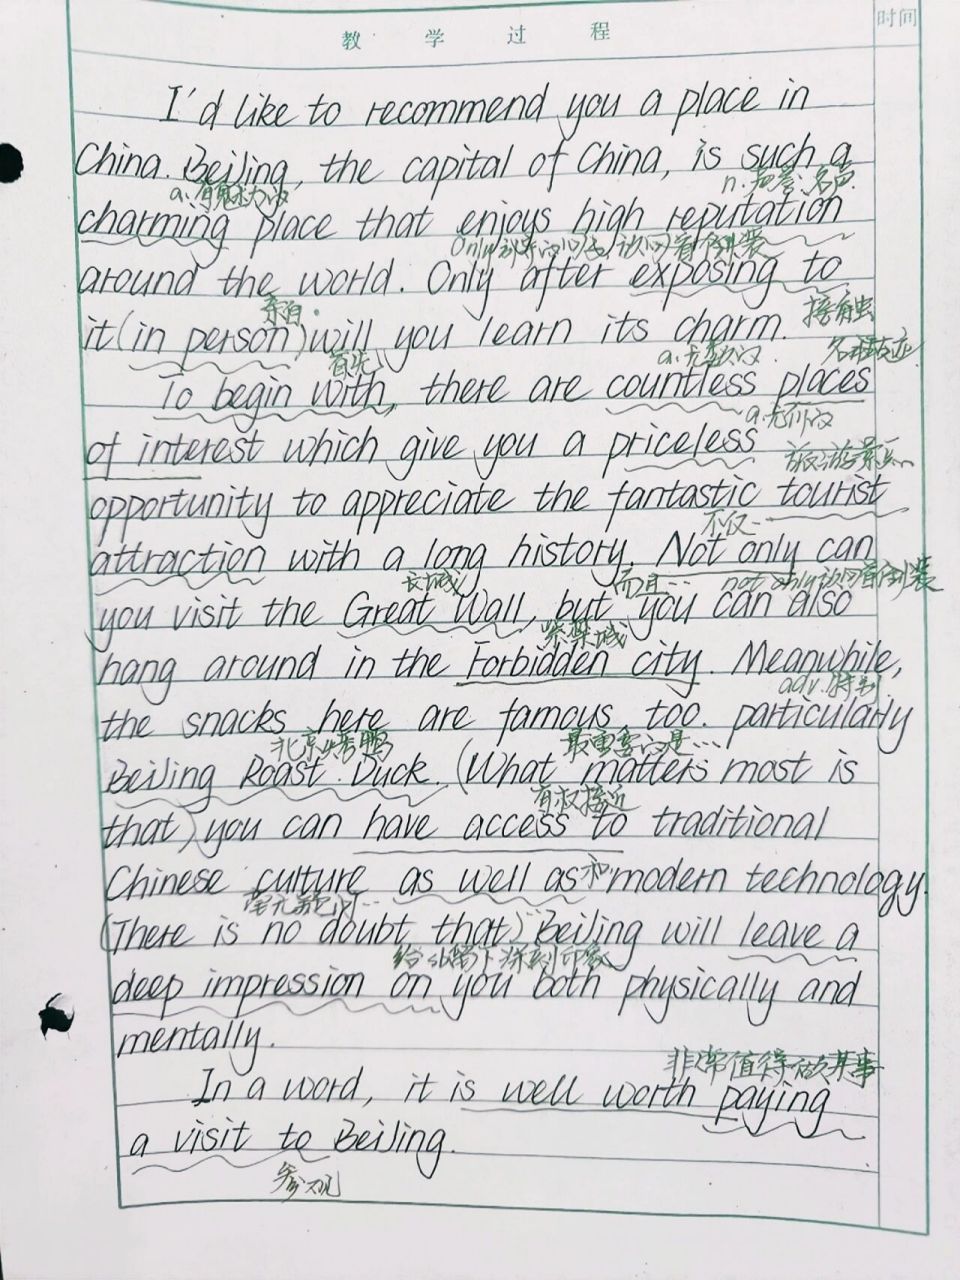 教 学 过 程
时间
I'd like to recommend you a place in
China. Beijing, the capital of China, is such a
a.有魅力的
n.声誉;名声
charming place that enjoys high reputation
Only 放句首倒装
around the world. Only after exposing to
亲自.
接触
it (in person) will you learn its charm.
首先
a.无数的.
名胜古迹
To begin with, there are countless places
a.无价的
of interest which give you a priceless
旅游景点
opportunity to appreciate the fantastic tourist
不仅...
attraction with a long history. Not only can
长城
而且...
not only放句首倒装
you visit the Great Wall, but you can also
紫禁城
hang around in the Forbidden city. Meanwhile,
adv.特别
the snacks here are famous, too. particularly
北京烤鸭
最重要的是...
Beijing Roast Duck. (What matters most is
有权接近
that) you can have access to traditional
Chinese culture as well as 和 modern technology.
毫无疑问...
(There is no doubt that) Beijing will leave a
给sb留下深刻印象
deep impression on you both physically and
mentally.
非常值得做某事
In a word, it is well worth paying
a visit to Beijing.
参观